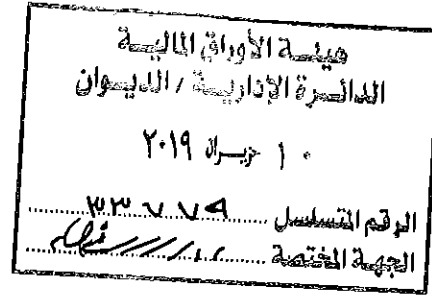 هيئة الأوراق المالية
الدائرة الإدارية / الديوان
١٠ حزيران ٢٠١٩
الرقم المتسلسل ٣٣٧٧٩
الجهة المختصة